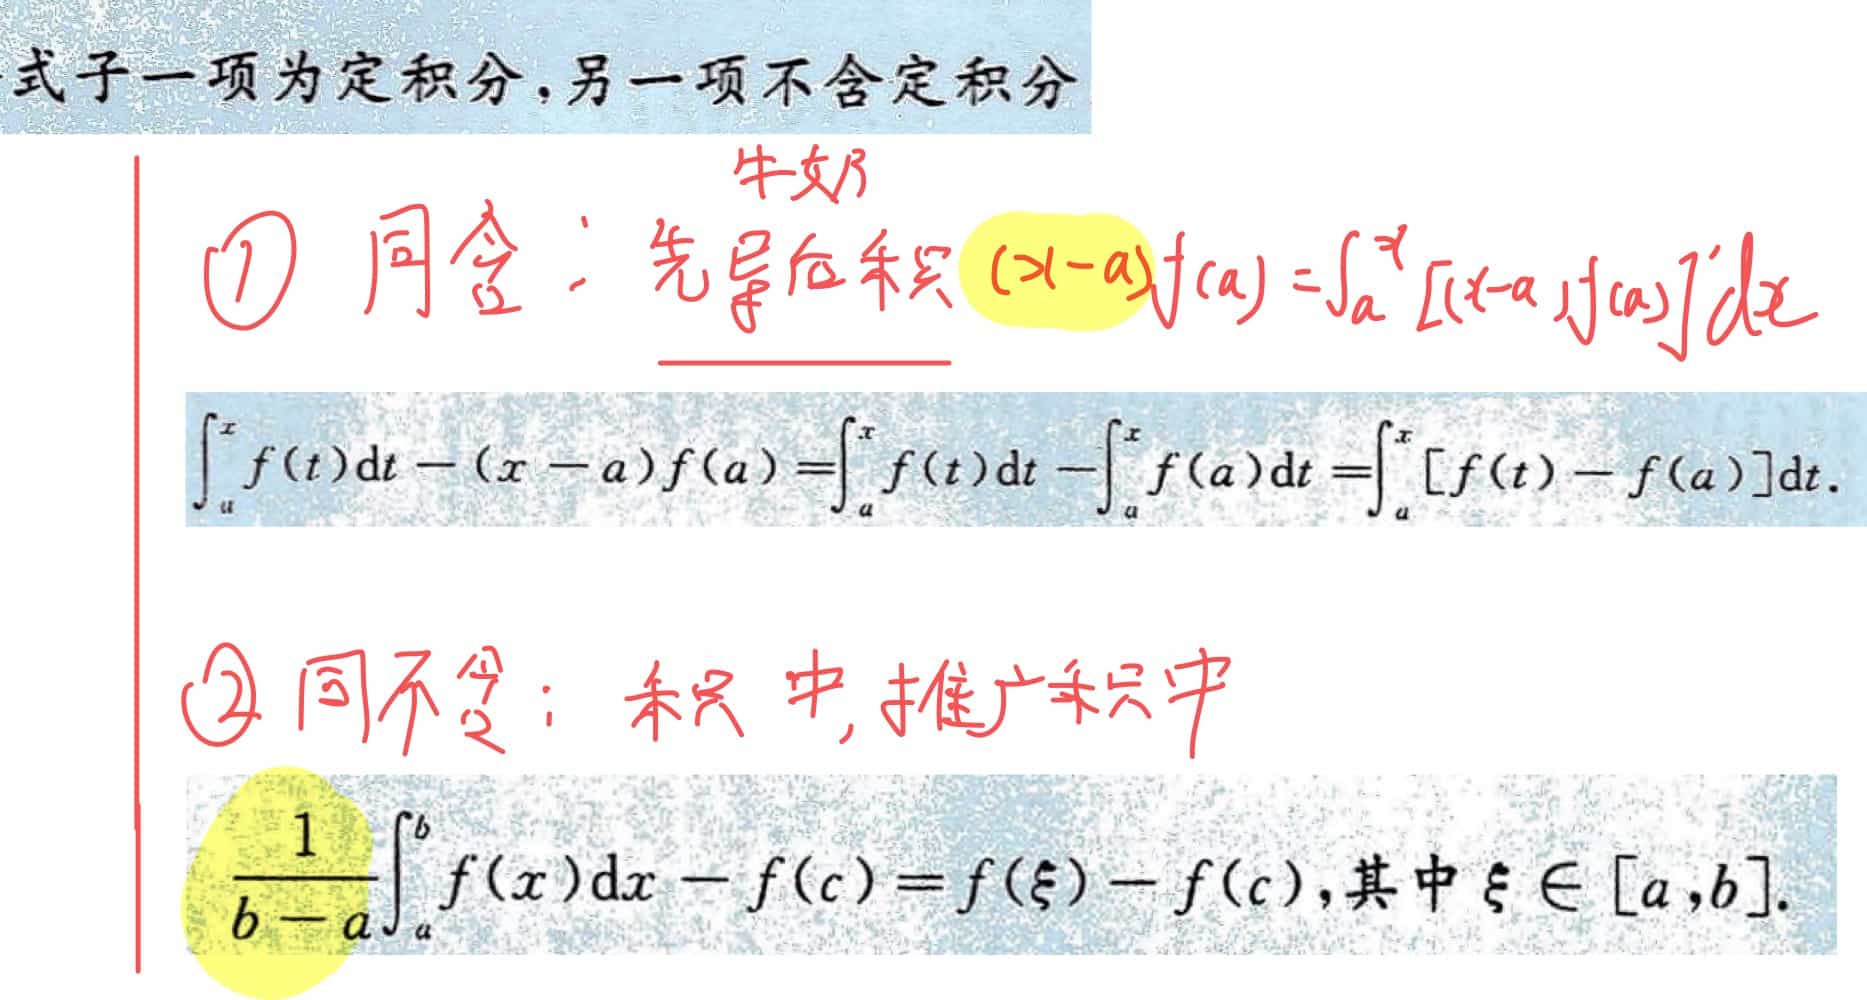 式子一项为定积分,另一项不含定积分
牛奶
① 同含：先导后积 (x-a)f(a)=∫ₐˣ[(x-a)f(a)]'dx
∫ₐˣ f(t)dt-(x-a)f(a)=∫ₐˣ f(t)dt-∫ₐˣ f(a)dt=∫ₐˣ[f(t)-f(a)]dt.
② 同不含：积中,推广积中
1/(b-a) ∫ₐᵇ f(x)dx-f(c)=f(ξ)-f(c),其中 ξ∈[a,b].